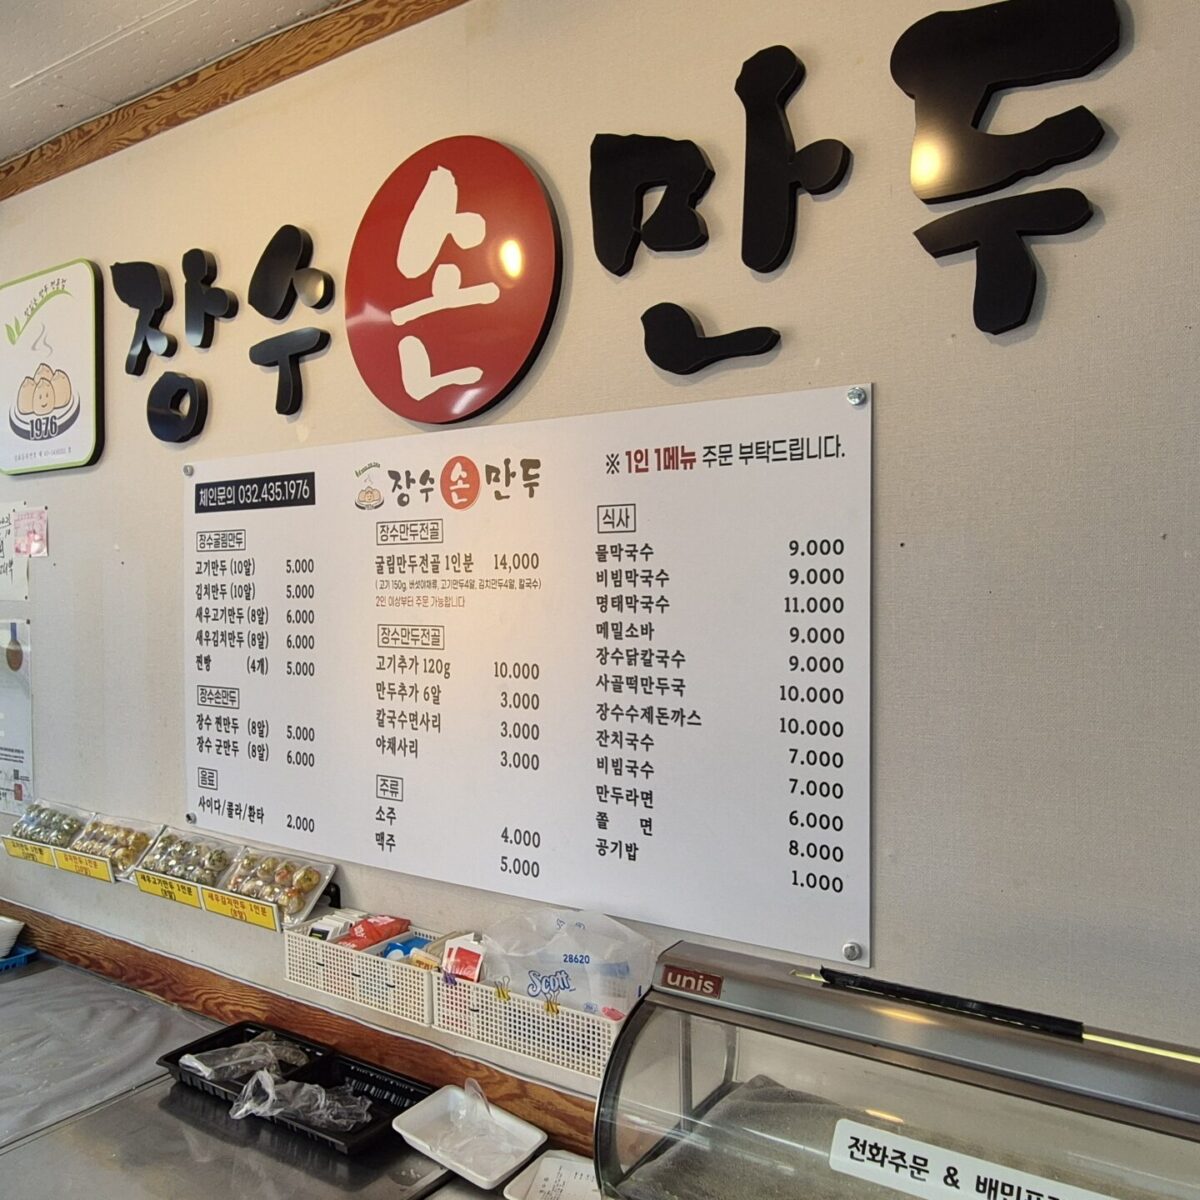 장수손만두
1976
체인문의 032.435.1976
장수손만두
※ 1인 1메뉴 주문 부탁드립니다.
장수굴림만두
고기만두 (10알) 5.000
김치만두 (10알) 5.000
새우고기만두 (8알) 6.000
새우김치만두 (8알) 6.000
찐빵 (4개) 5.000
장수손만두
장수 찐만두 (8알) 5.000
장수 군만두 (8알) 6.000
음료
사이다/콜라/환타 2.000
장수만두전골
굴림만두전골 1인분 14,000
(고기 150g, 버섯야채류, 고기만두4알, 김치만두4알, 칼국수)
2인 이상부터 주문 가능합니다
장수만두전골
고기추가 120g 10.000
만두추가 6알 3.000
칼국수면사리 3.000
야채사리 3.000
주류
소주 4.000
맥주 5.000
식사
물막국수 9.000
비빔막국수 9.000
명태막국수 11.000
메밀소바 9.000
장수닭칼국수 9.000
사골떡만두국 10.000
장수수제돈까스 10.000
잔치국수 7.000
비빔국수 7.000
만두라면 6.000
쫄 면 8.000
공기밥 1.000
새우고기만두 1인분
(8알)
새우김치만두 1인분
(8알)
28620
Scott
unis
전화주문 & 배민